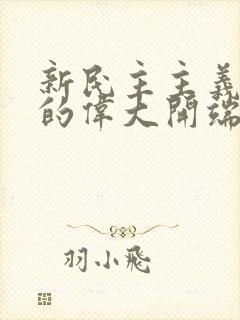 新民主主義
的偉大開端
羽小飛